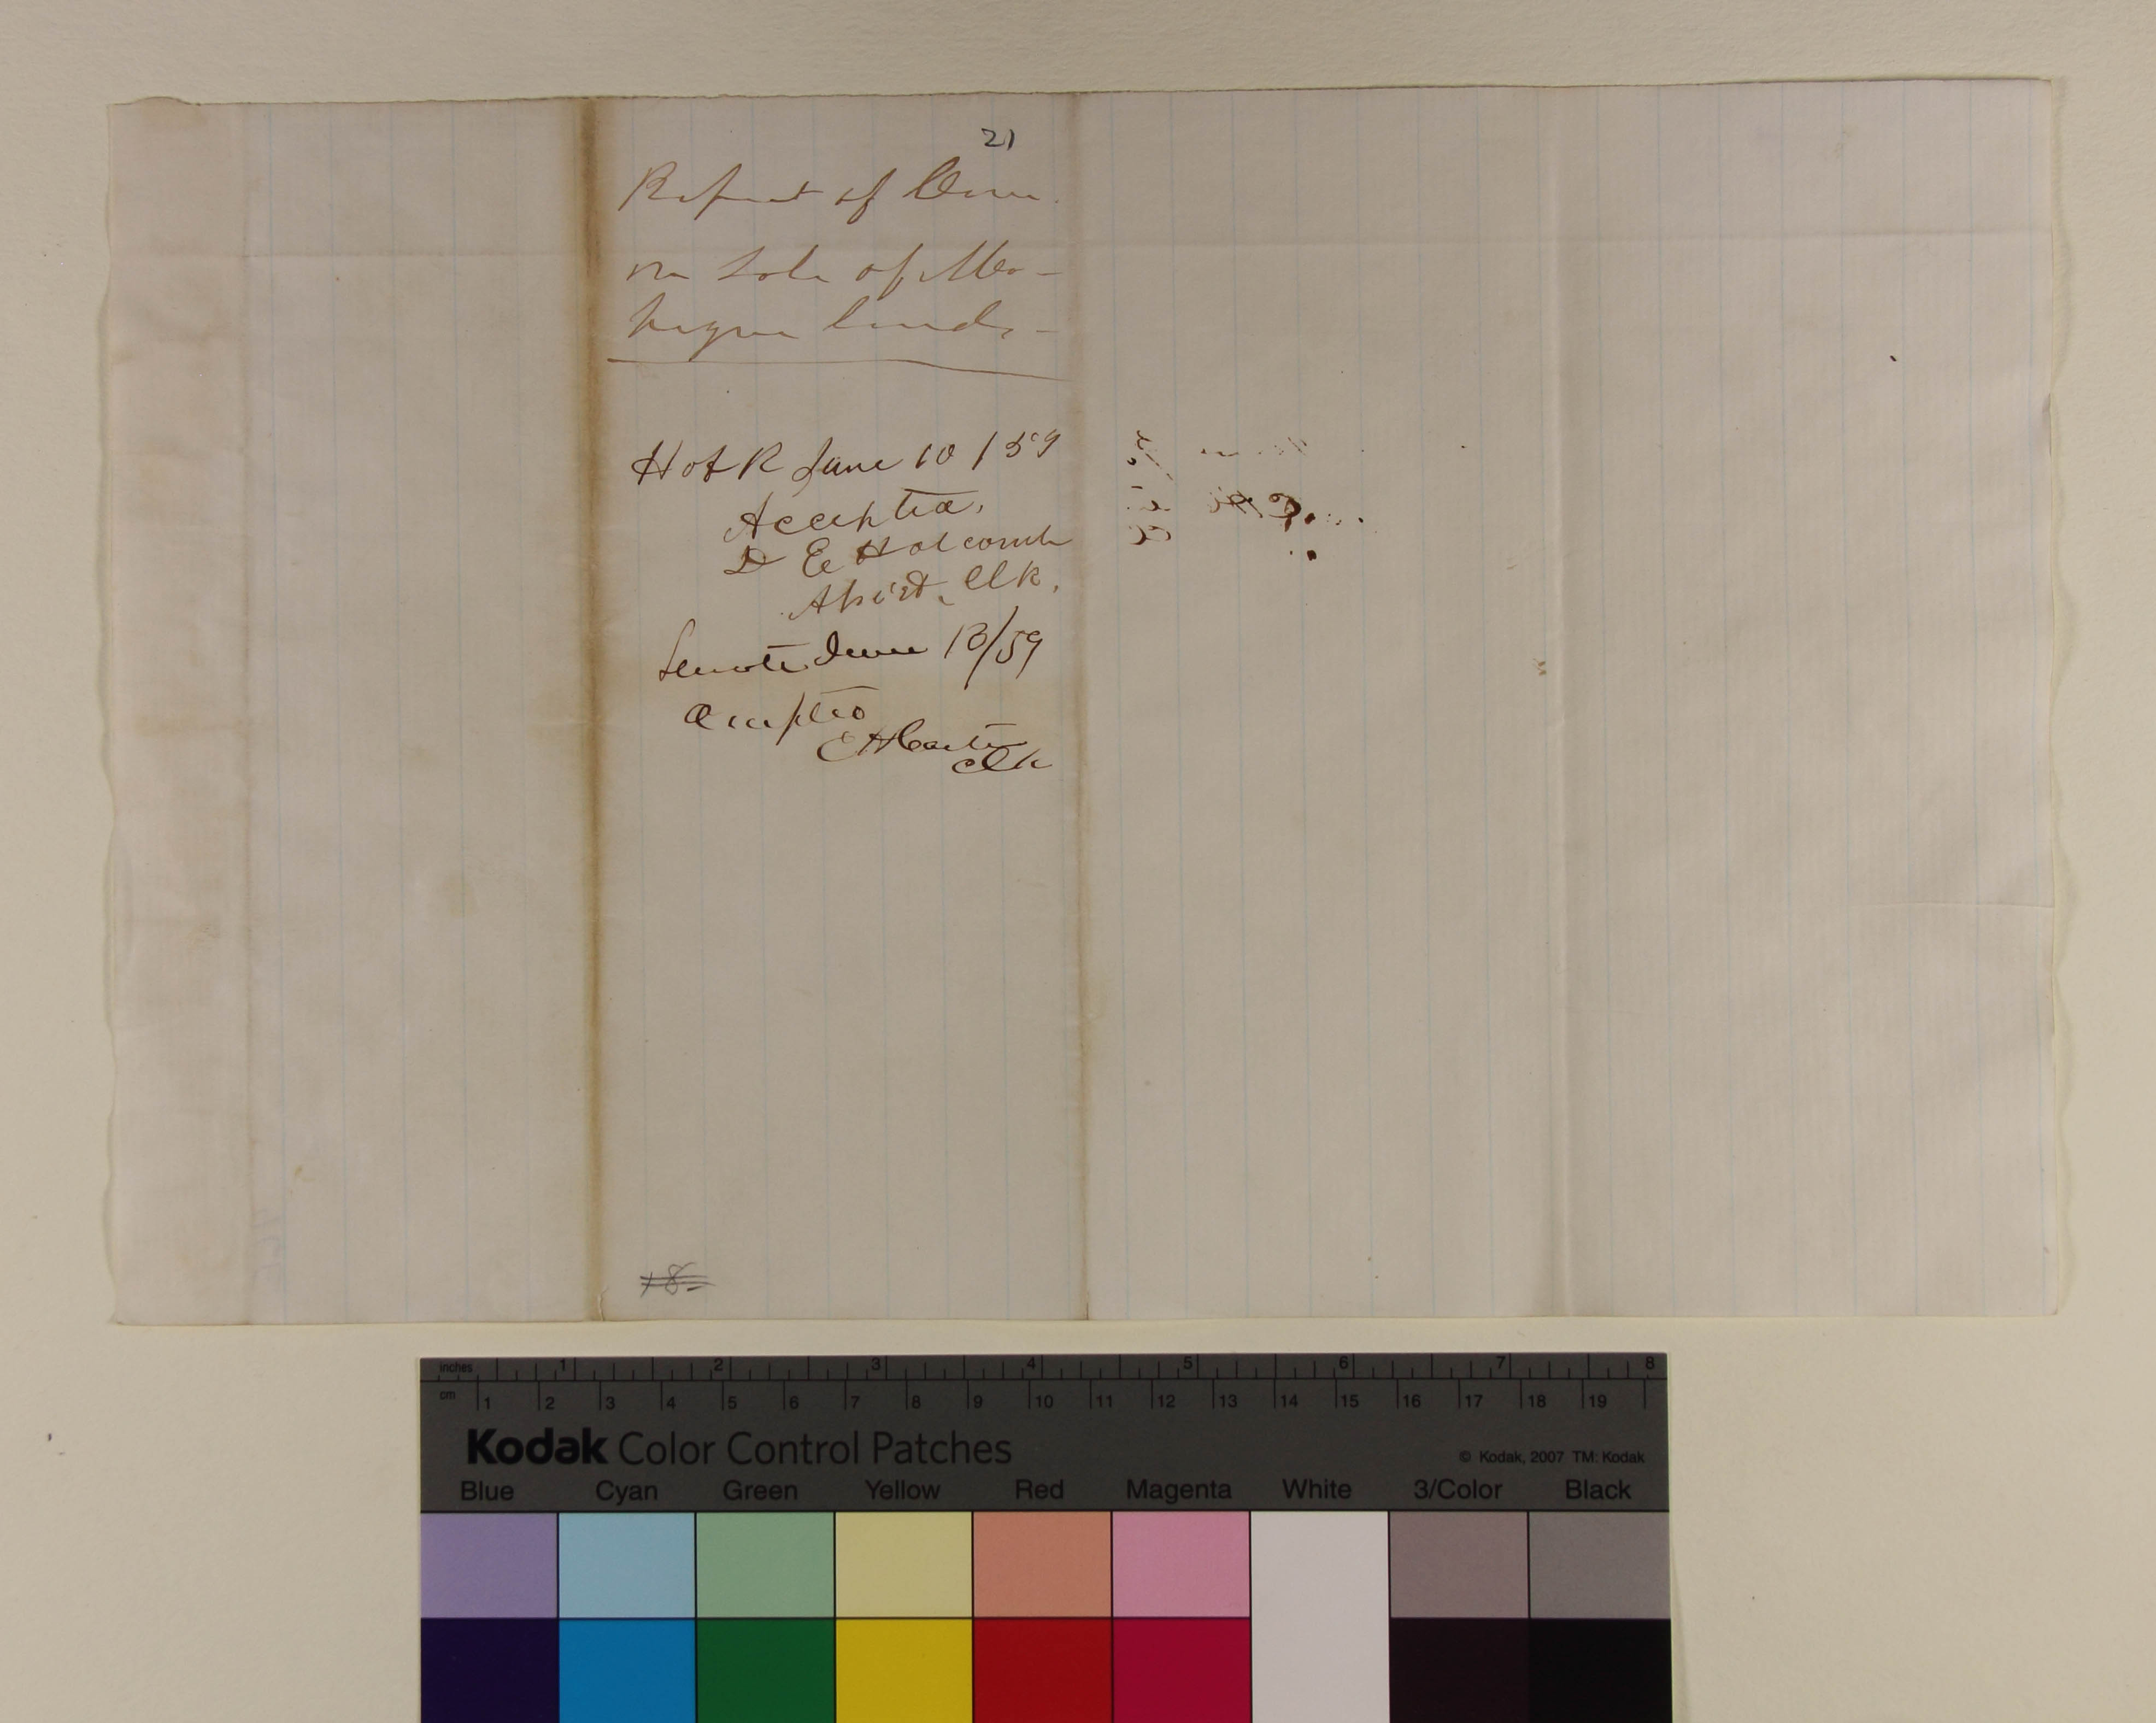 21
Report of Com.
on Sale of Mo-
hegan lands -
H of R June 10 / 59
Accepted.
D E Holcomb
Assist. Clk.
Senate June 13/59
Accepted
E H Carter
Clk
18
inches 1 2 3 4 5 6 7 8
cm 1 2 3 4 5 6 7 8 9 10 11 12 13 14 15 16 17 18 19
Kodak Color Control Patches
© Kodak, 2007 TM: Kodak
Blue Cyan Green Yellow Red Magenta White 3/Color Black